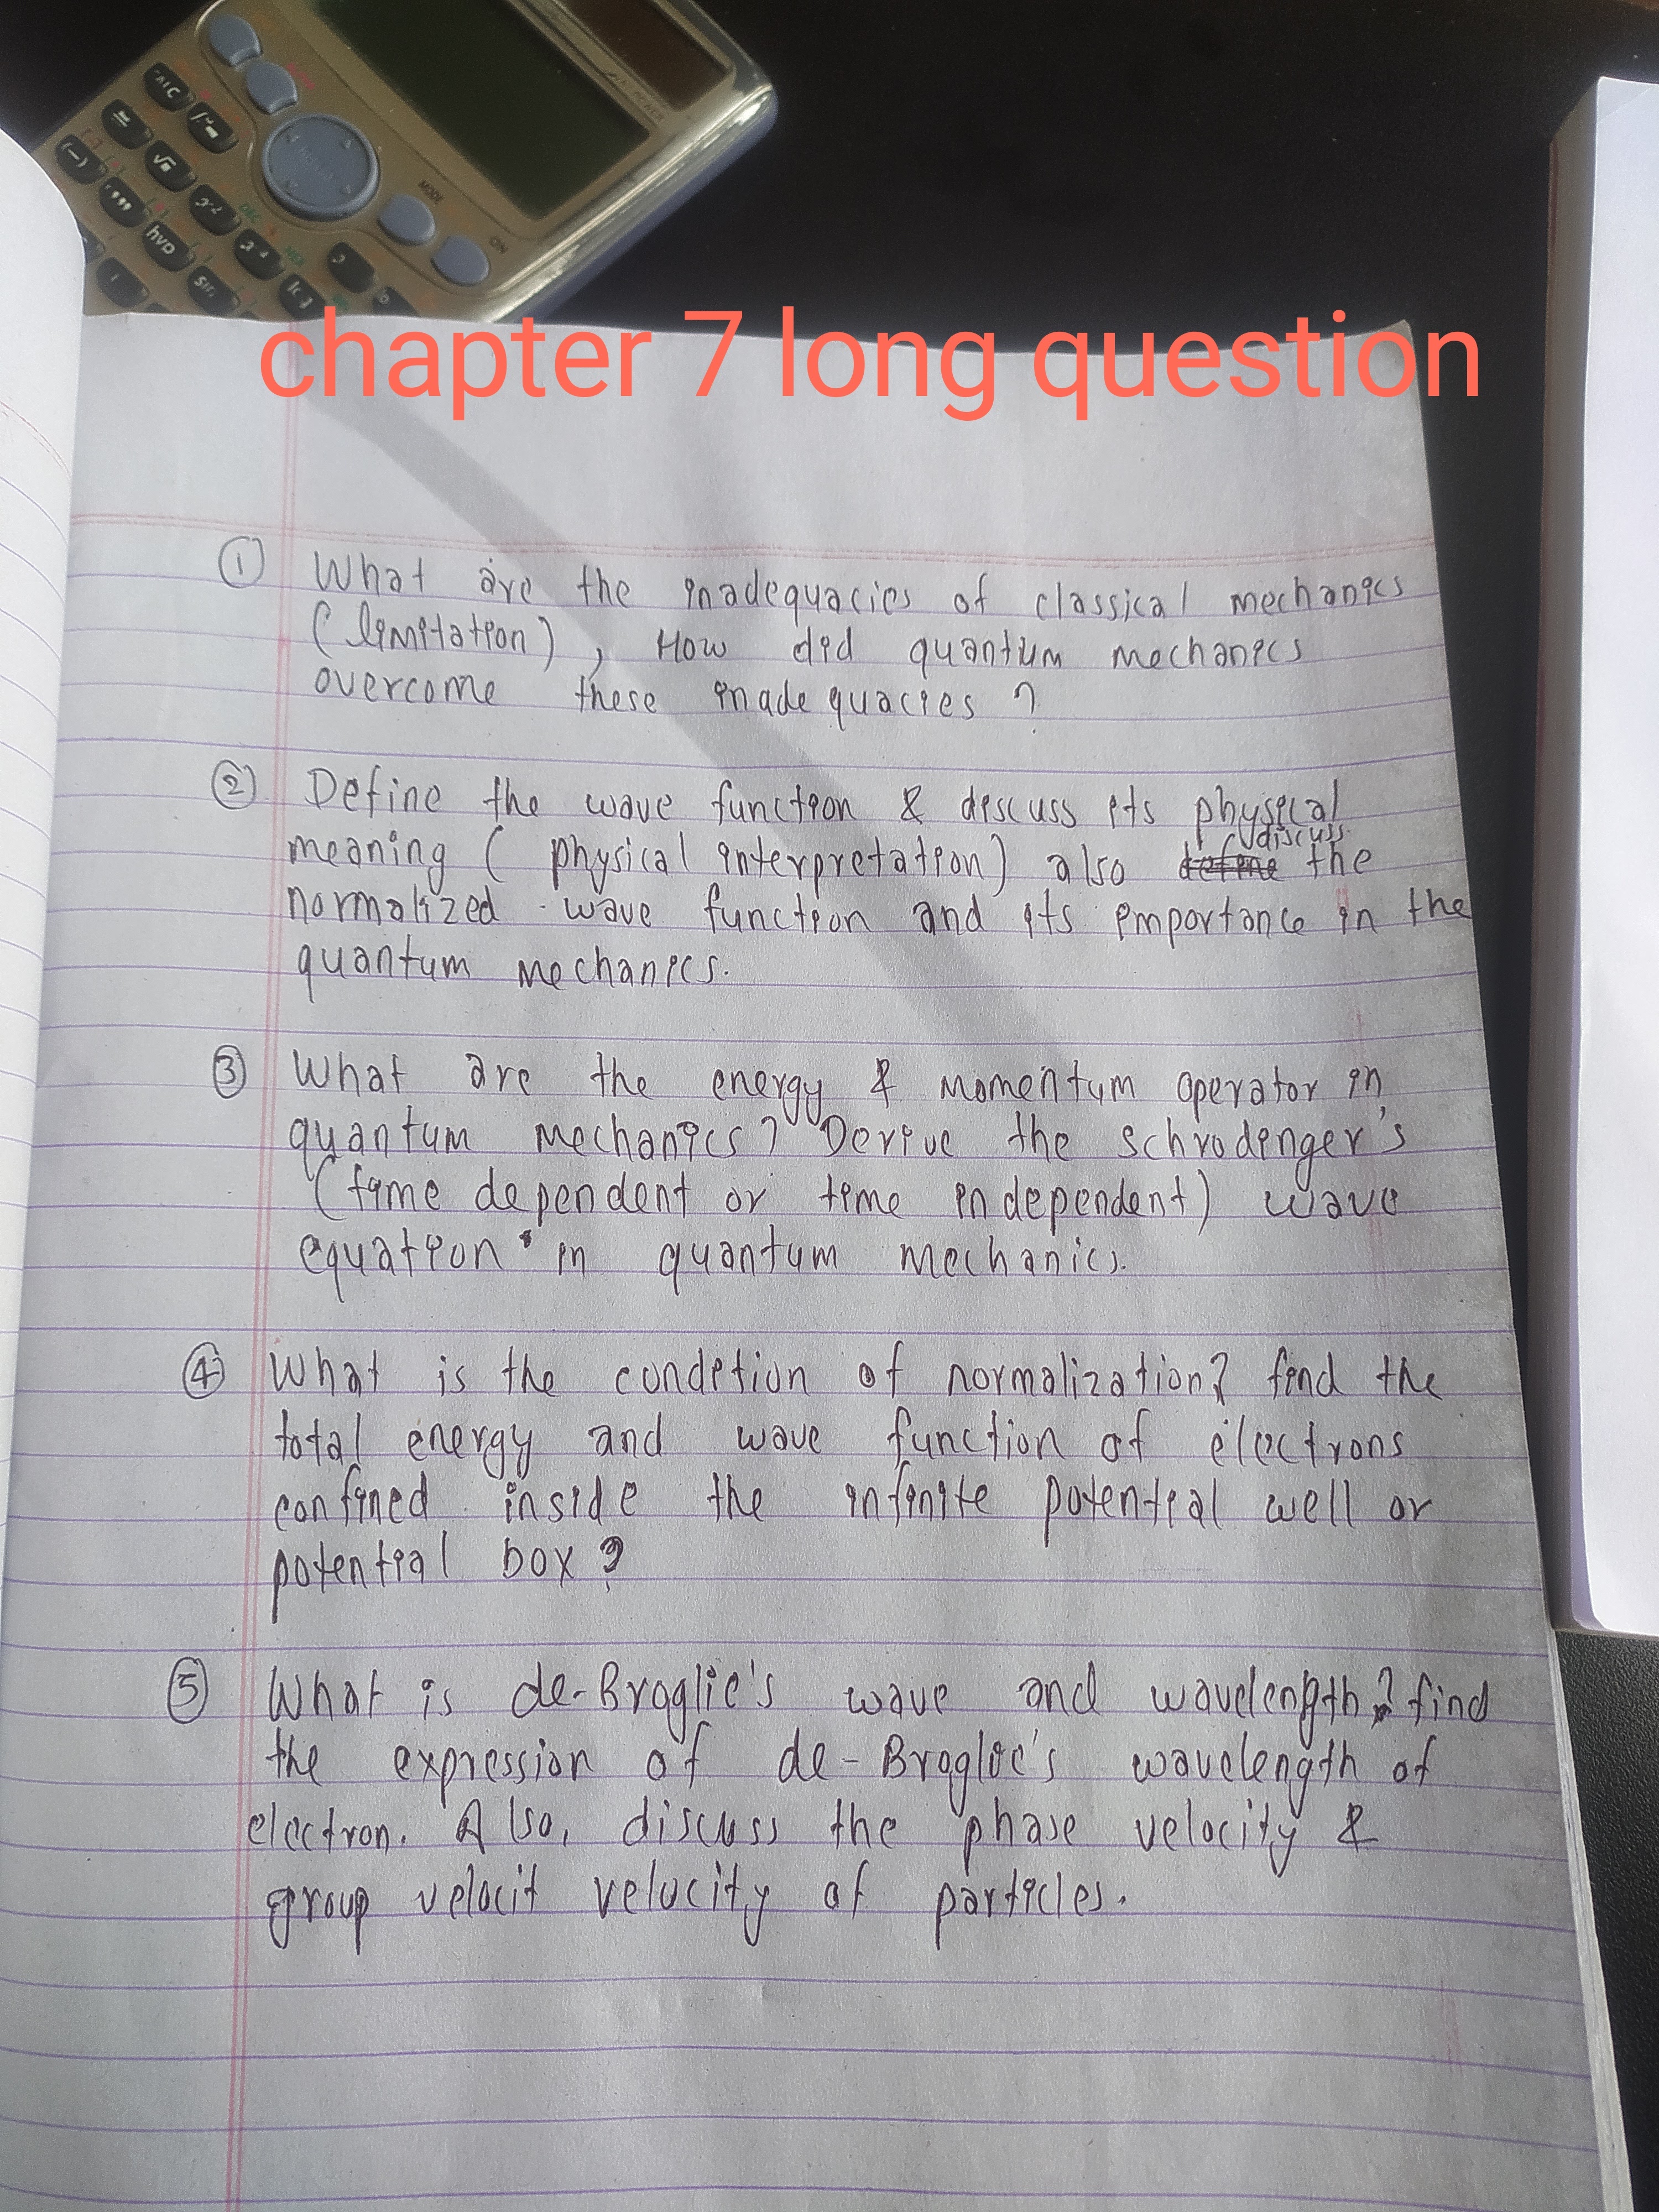 CALC
MODE
ON
hyp
sin
chapter 7 long question
① What are the inadequacies of classical mechanics
(limitation), How did quantum mechanics
overcome these inadequacies ?
② Define the wave function & discuss its physical
meaning (physical interpretation) also define discuss the
normalized wave function and its importance in the
quantum mechanics.
③ What are the energy & momentum operator in
quantum mechanics? Derive the schrodinger's
(time dependent or time independent) wave
equation in quantum mechanics.
④ What is the condition of normalization? find the
total energy and wave function of electrons
confined inside the infinite potential well or
potential box ?
⑤ What is de-Broglie's wave and wavelength? find
the expression of de-Broglie's wavelength of
electron. Also, discuss the phase velocity &
group velocit velocity of particles.